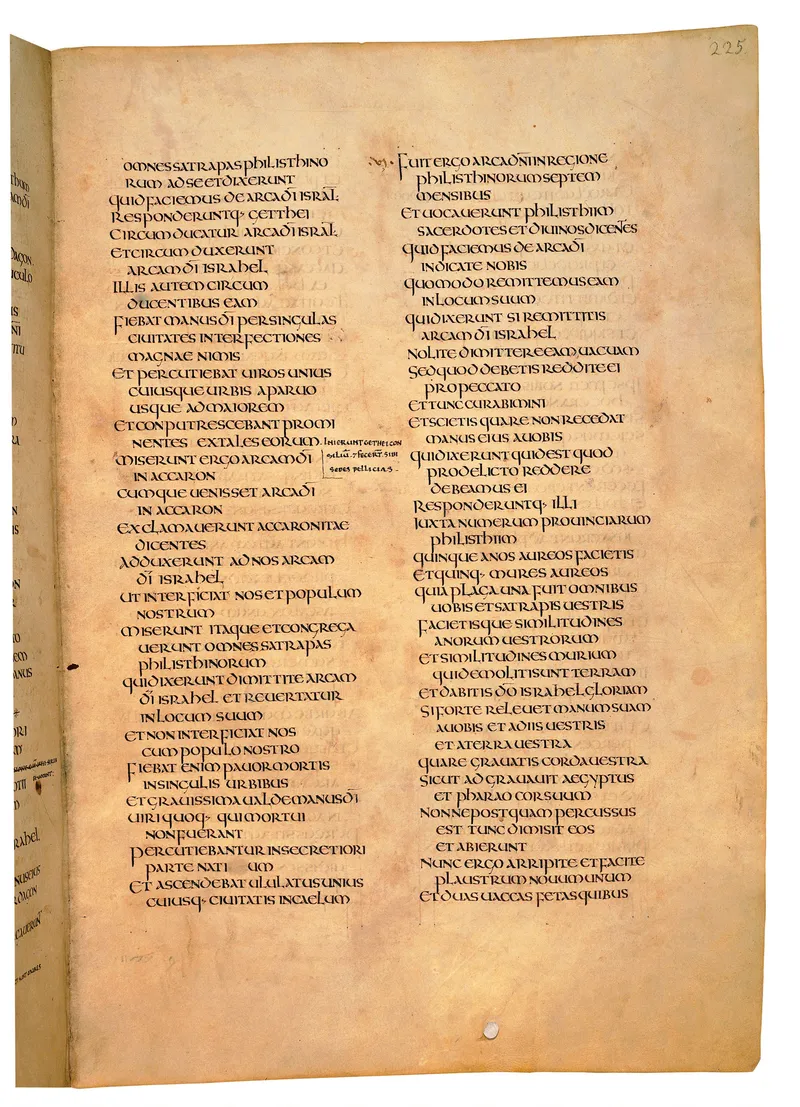 225
OMNES SATRAPAS PHILISTHINO
RUM AD SE ET DIXERUNT
QUID FACIEMUS DE ARCA DĪ ISRĀL·
RESPONDERUNTQ· GETTHEI
CIRCUMDUCATUR ARCA DĪ ISRĀL·
ET CIRCUMDUXERUNT
ARCAM DĪ ISRAHEL
ILLIS AUTEM CIRCUM
DUCENTIBUS EAM
FIEBAT MANUS DĪ PER SINGULAS
CIUITATES INTERFECTIONES
MAGNAE NIMIS
ET PERCUTIEBAT UIROS UNIUS
CUIUSQUE URBIS A PARUO
USQUE AD MAIOREM
ET CONPUTRESCEBANT PROMI
NENTES EXTALES EORUM. INIERUNT GETHEI CON
SILIŪ. ⁊ FECERT̄. SIBI
SEDES PELLICIAS.
MISERUNT ERGO ARCAM DĪ
IN ACCARON
CUMQUE UENISSET ARCA DĪ
IN ACCARON
EXCLAMAUERUNT ACCARONITAE
DICENTES
ADDUXERUNT AD NOS ARCAM
DĪ ISRAHEL
UT INTERFICIAT NOS ET POPULUM
NOSTRUM
MISERUNT ITAQUE ET CONGREGA
UERUNT OMNES SATRAPAS
PHILISTHINORUM
QUI DIXERUNT DIMITTITE ARCAM
DĪ ISRAHEL ET REUERTATUR
IN LOCUM SUUM
ET NON INTERFICIAT NOS
CUM POPULO NOSTRO
FIEBAT ENIM PAUOR MORTIS
IN SINGULIS URBIBUS
ET GRAUISSIMA UALDE MANUS DĪ
UIRI QUOQ· QUI MORTUI
NON FUERANT
PERCUTIEBANTUR IN SECRETIORI
PARTE NATI UM
ET ASCENDEBAT ULULATUS UNIUS
CUIUSQ· CIUITATIS IN CAELUM
FUIT ERGO ARCA DN̄I IN REGIONE
PHILISTHINORUM SEPTEM
MENSIBUS
ET UOCAUERUNT PHILISTHIIM
SACERDOTES ET DIUINOS DICEN̄ES
QUID FACIEMUS DE ARCA DĪ
INDICATE NOBIS
QUOMODO REMITTEMUS EAM
IN LOCUM SUUM
QUI DIXERUNT SI REMITTITIS
ARCAM DĪ ISRAHEL
NOLITE DIMITTERE EAM UACUAM
SED QUOD DEBETIS REDDITE EI
PRO PECCATO
ET TUNC CURABIMINI
ET SCIETIS QUARE NON RECEDAT
MANUS EIUS A UOBIS
QUI DIXERUNT QUID EST QUOD
PRO DELICTO REDDERE
DEBEAMUS EI
RESPONDERUNTQ· ILLI
IUXTA NUMERUM PROUINCIARUM
PHILISTHIIM
QUINQUE ANOS AUREOS FACIETIS
ET QUINQ· MURES AUREOS
QUIA PLAGA UNA FUIT OMNIBUS
UOBIS ET SATRAPIS UESTRIS
FACIETISQUE SIMILITUDINES
ANORUM UESTRORUM
ET SIMILITUDINES MURIUM
QUI DEMOLITI SUNT TERRAM
ET DABITIS DŌ ISRAHEL GLORIAM
SI FORTE RELEUET MANUM SUAM
A UOBIS ET A DIIS UESTRIS
ET A TERRA UESTRA
QUARE GRAUATIS CORDA UESTRA
SICUT ADGRAUAUIT AEGYPTUS
ET PHARAO COR SUUM
NONNE POSTQUAM PERCUSSUS
EST TUNC DIMISIT EOS
ET ABIERUNT
NUNC ERGO ARRIPITE ET FACITE
PLAUSTRUM NOUUM UNUM
ET DUAS UACCAS FETAS QUIBUS